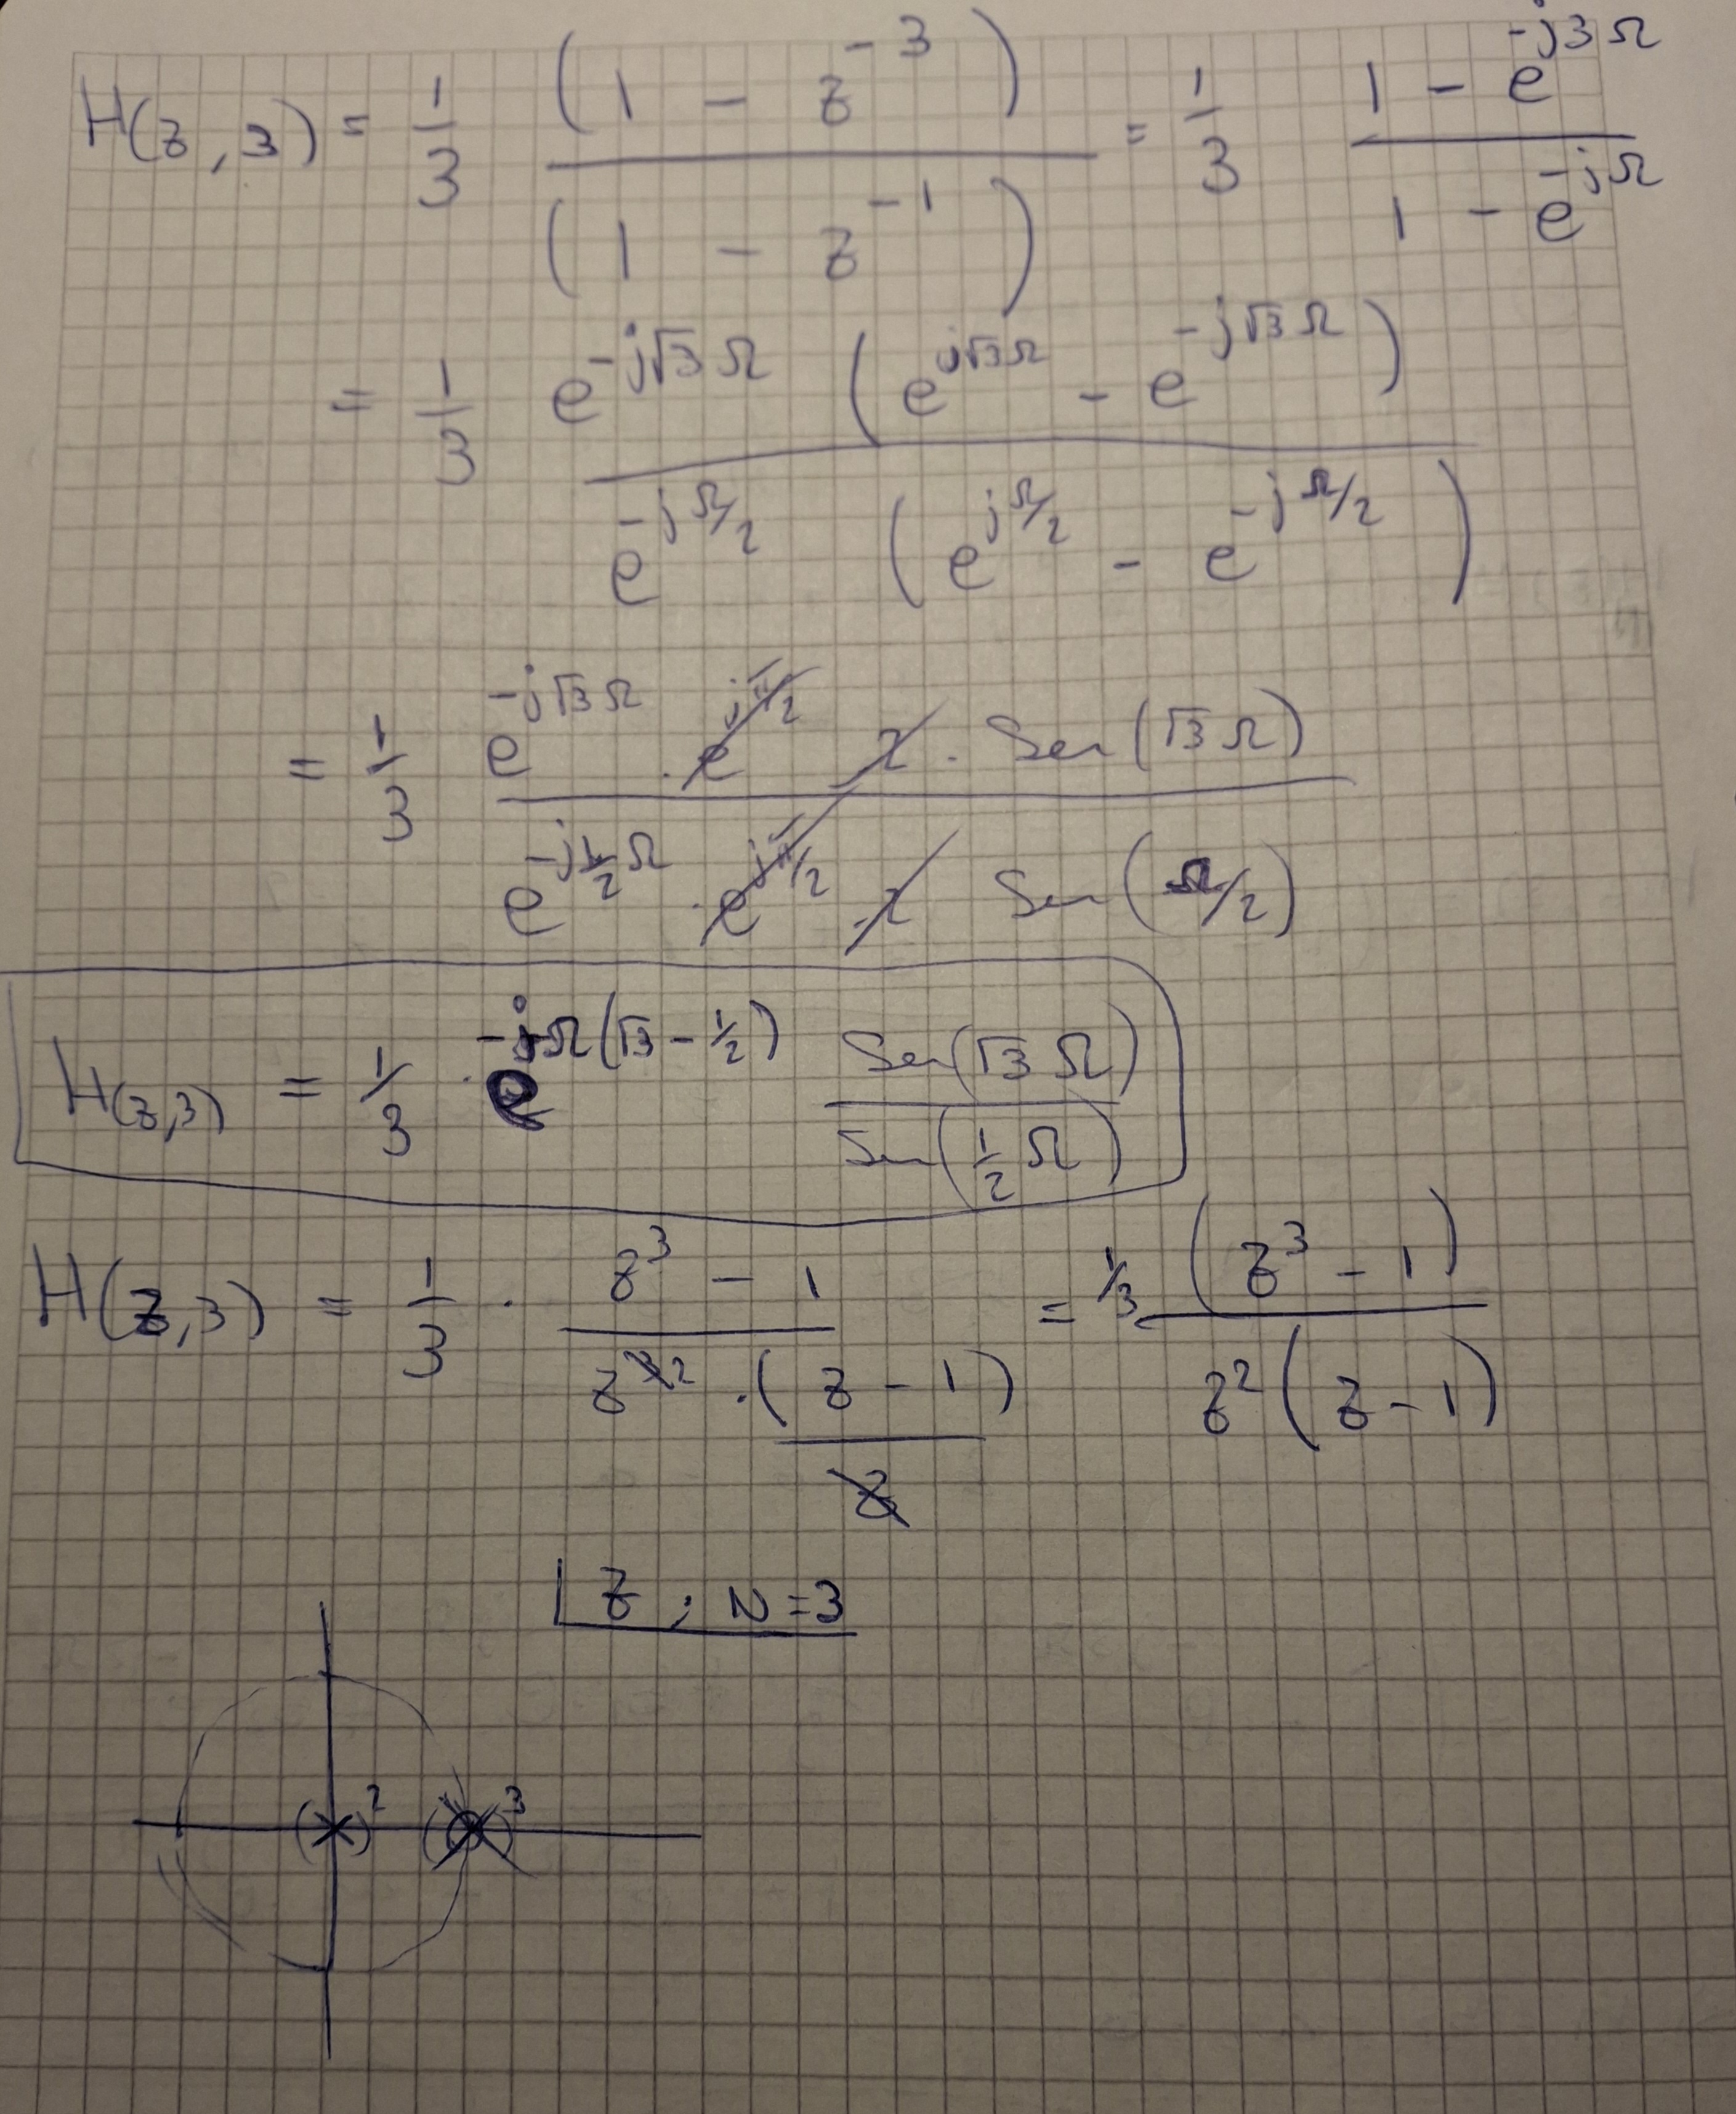 H(z,3) = 1/3 (1 - z^-3)/(1 - z^-1) = 1/3 (1 - e^-j3Ω)/(1 - e^-jΩ)
= 1/3 e^-j√3Ω (e^j√3Ω - e^-j√3Ω) / e^-jΩ/2 (e^jΩ/2 - e^-jΩ/2)
= 1/3 e^-j√3Ω . e^jπ/2 . 2 . Sen(√3Ω) / e^-j1/2Ω . e^jπ/2 . 2 Sen(Ω/2)
H(z,3) = 1/3 . e^-jΩ(√3 - 1/2) Sen(√3Ω)/Sen(1/2Ω)
H(z,3) = 1/3 . (z^3 - 1)/(z^2 . (z - 1)/z) = 1/3 (z^3 - 1)/(z^2 (z - 1))
z ; N=3
(×)^2 ( )^3